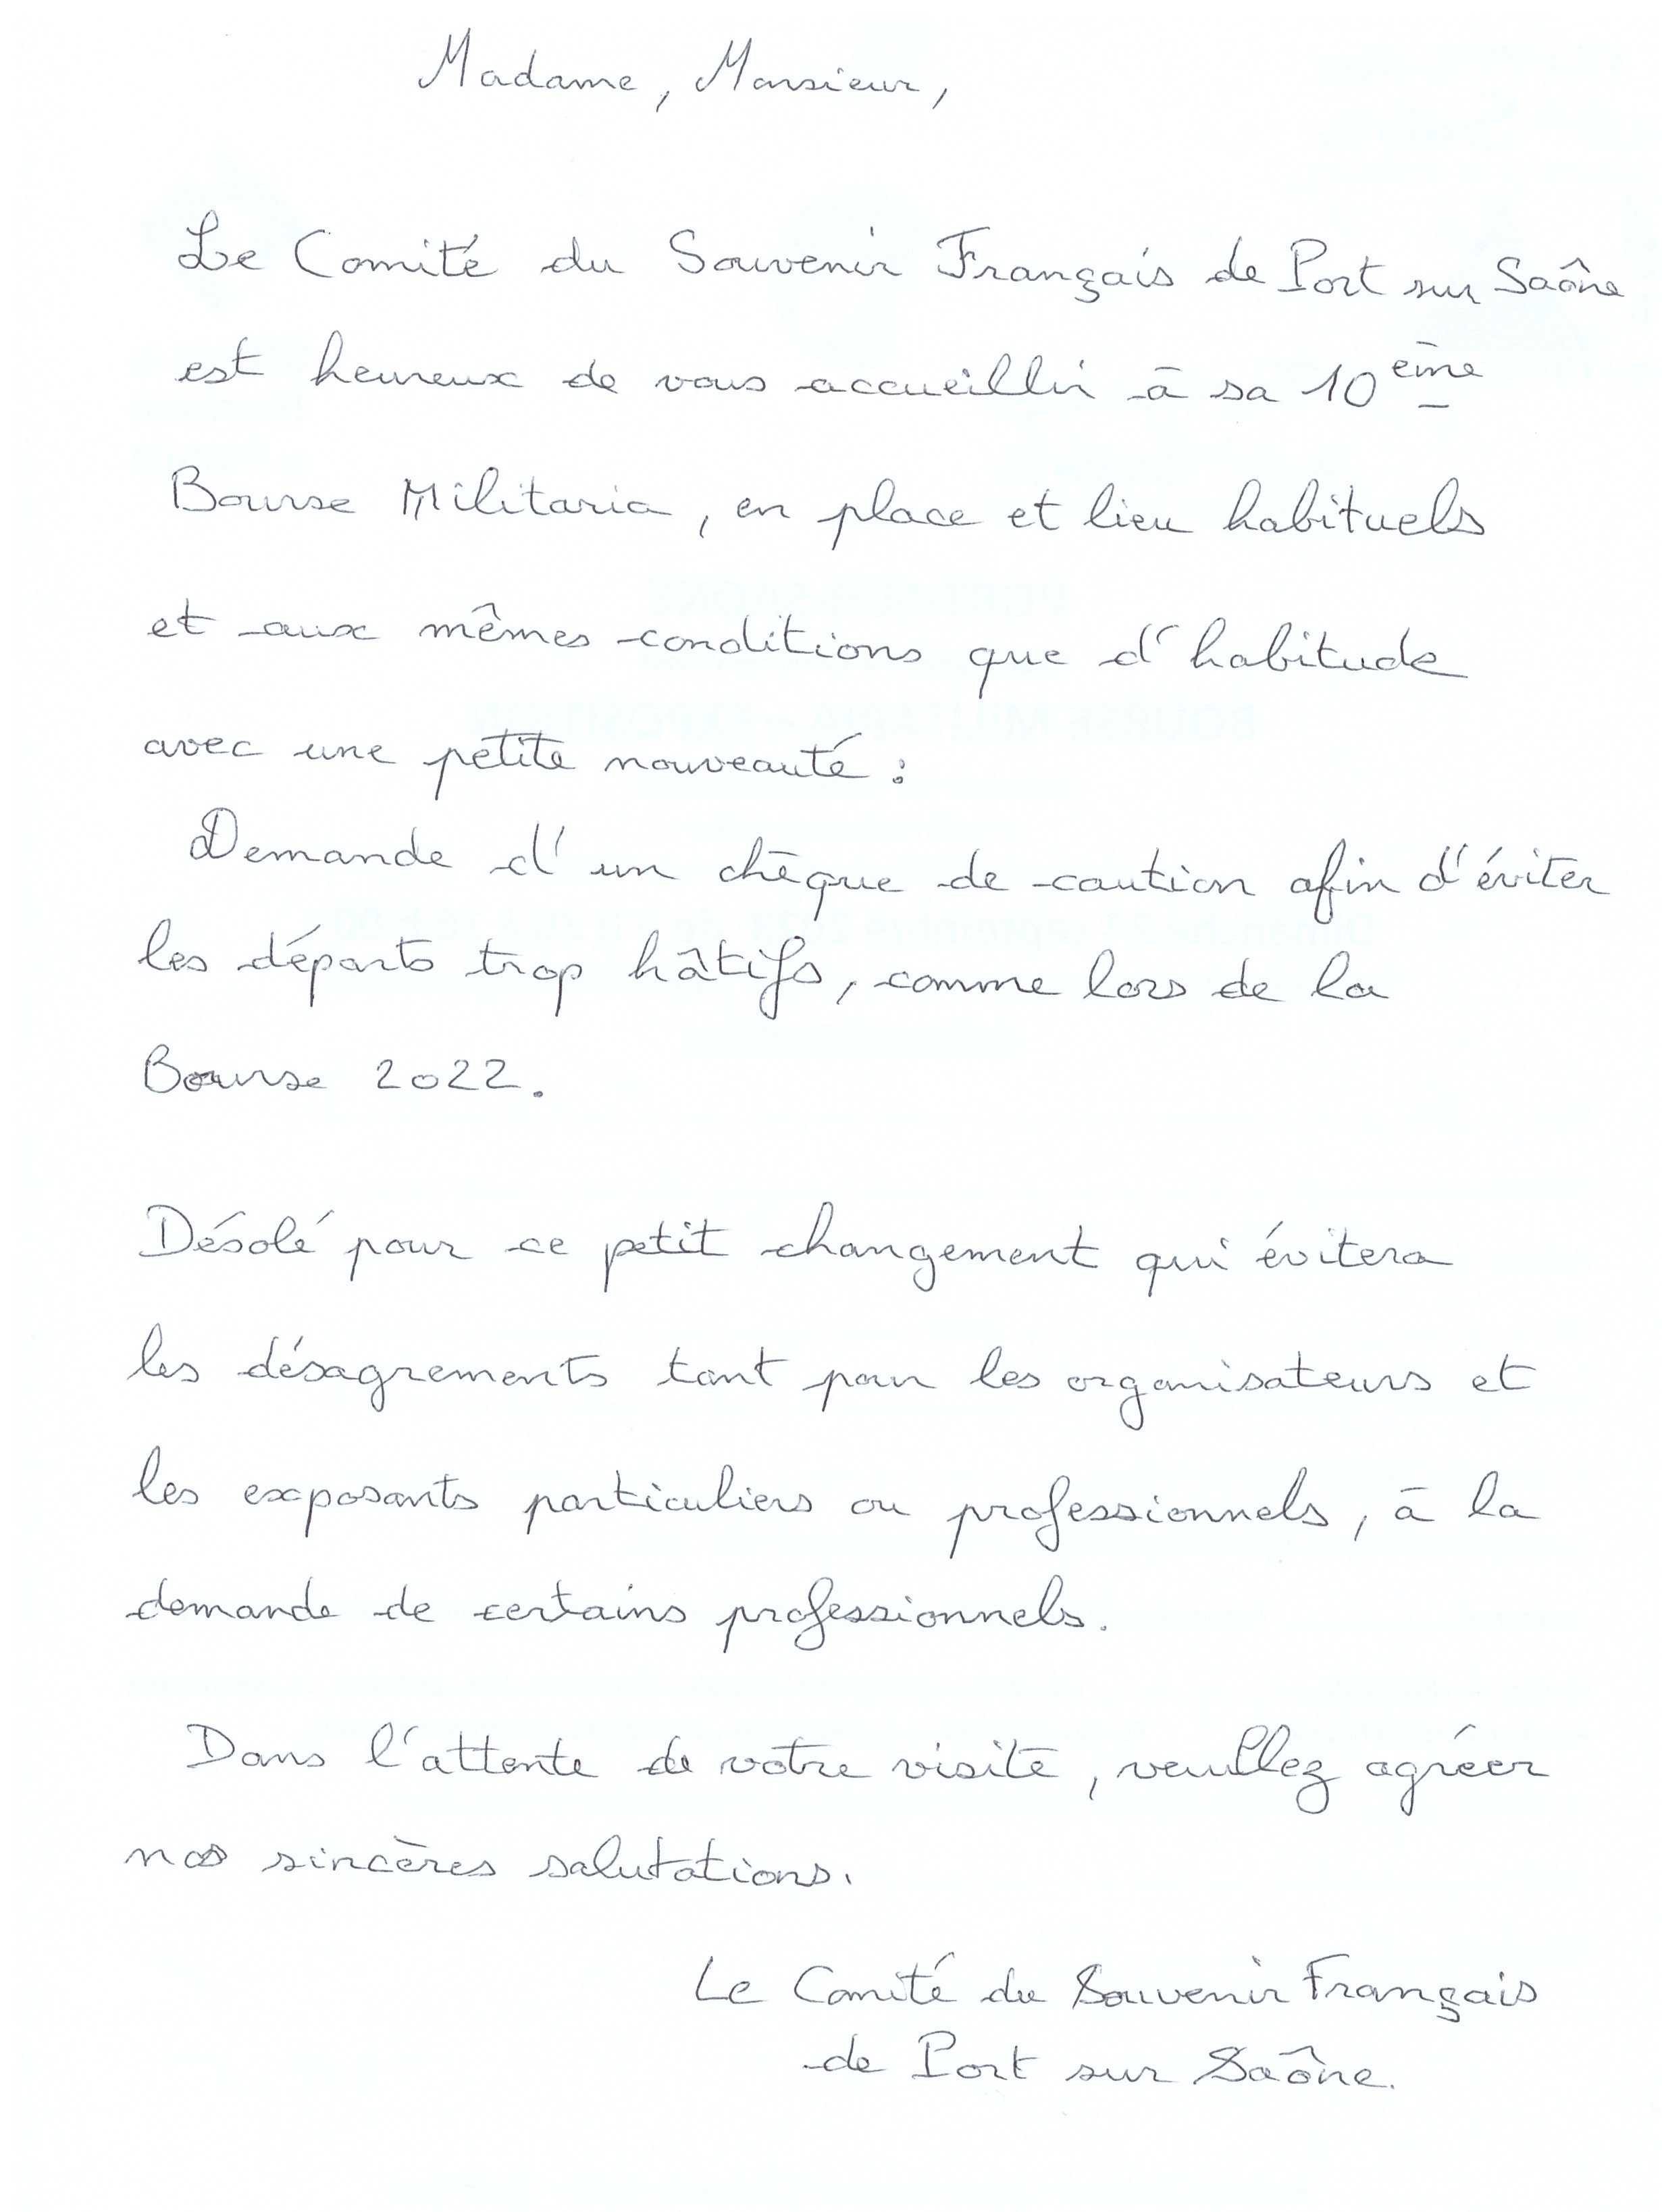 Madame, Monsieur,
Le Comité du Souvenir Français de Port sur Saône
est heureux de vous accueillir à sa 10ème
Bourse Militaria, en place et lieu habituels
et aux mêmes conditions que d'habitude
avec une petite nouveauté :
Demande d'un chèque de caution afin d'éviter
les départs trop hâtifs, comme lors de la
Bourse 2022.
Désolé pour ce petit changement qui évitera
les désagrements tant pour les organisateurs et
les exposants particuliers ou professionnels, à la
demande de certains professionnels.
Dans l'attente de votre visite, veuillez agréer
nos sincères salutations.
Le Comité du Souvenir Français
de Port sur Saône.